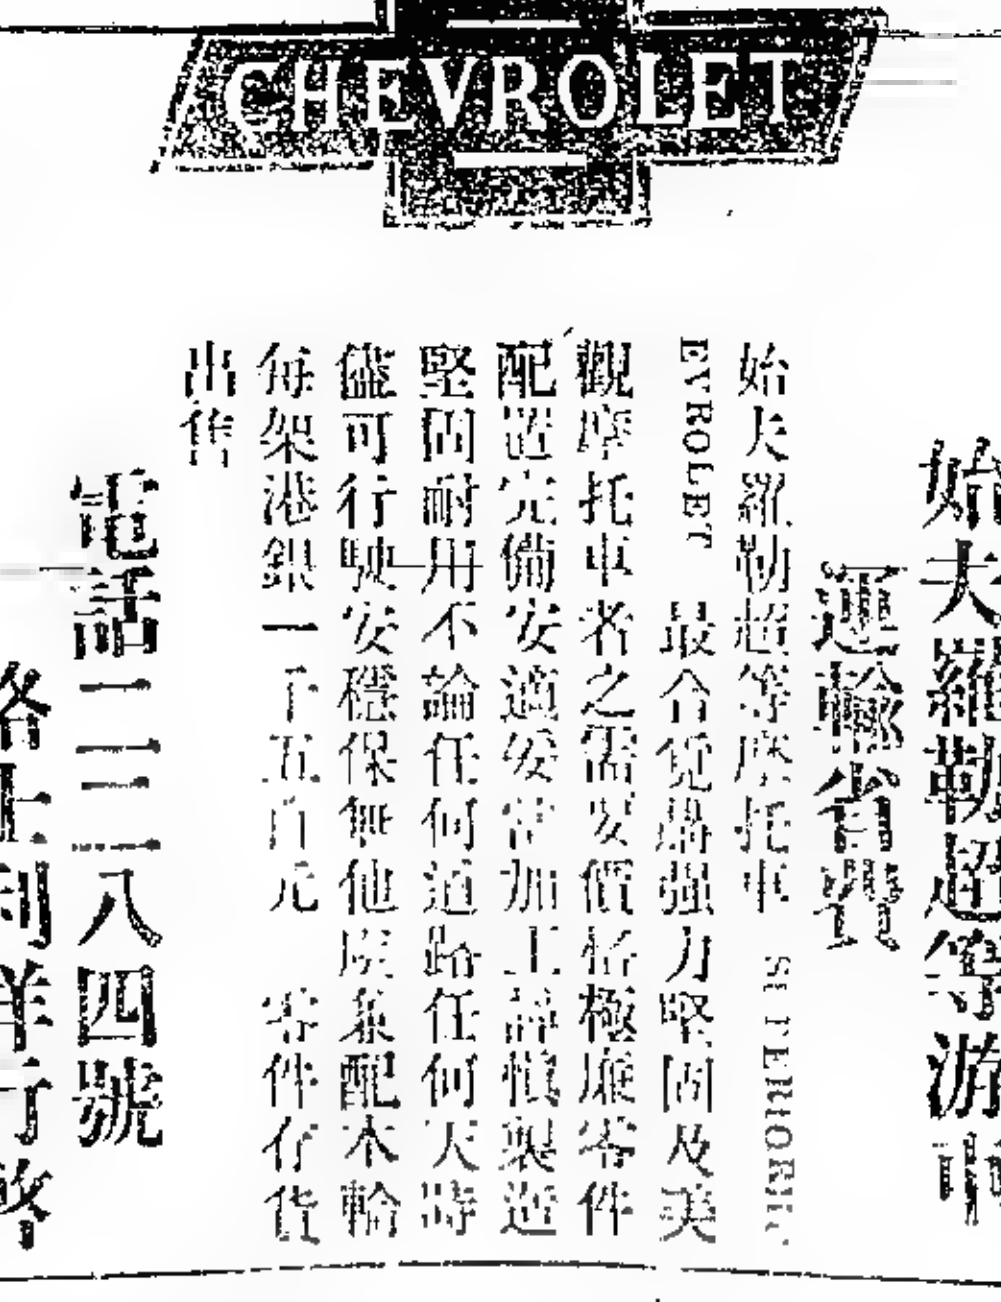 CHEVROLET
始夫羅勒超等游車
運輸省費
始夫羅勒超等摩托車 SUPERIOR
EVROLET 最合寬濶强力堅固及美
觀摩托車者之需要價格極廉零件
配置完備安適妥當加工謹愼製造
堅固耐用不論任何道路任何天時
儘可行駛安穩保無他虞兼配木輪
每架港銀一千五百元 零件存貨
出售
電話二三二八四號
路士利洋行啓